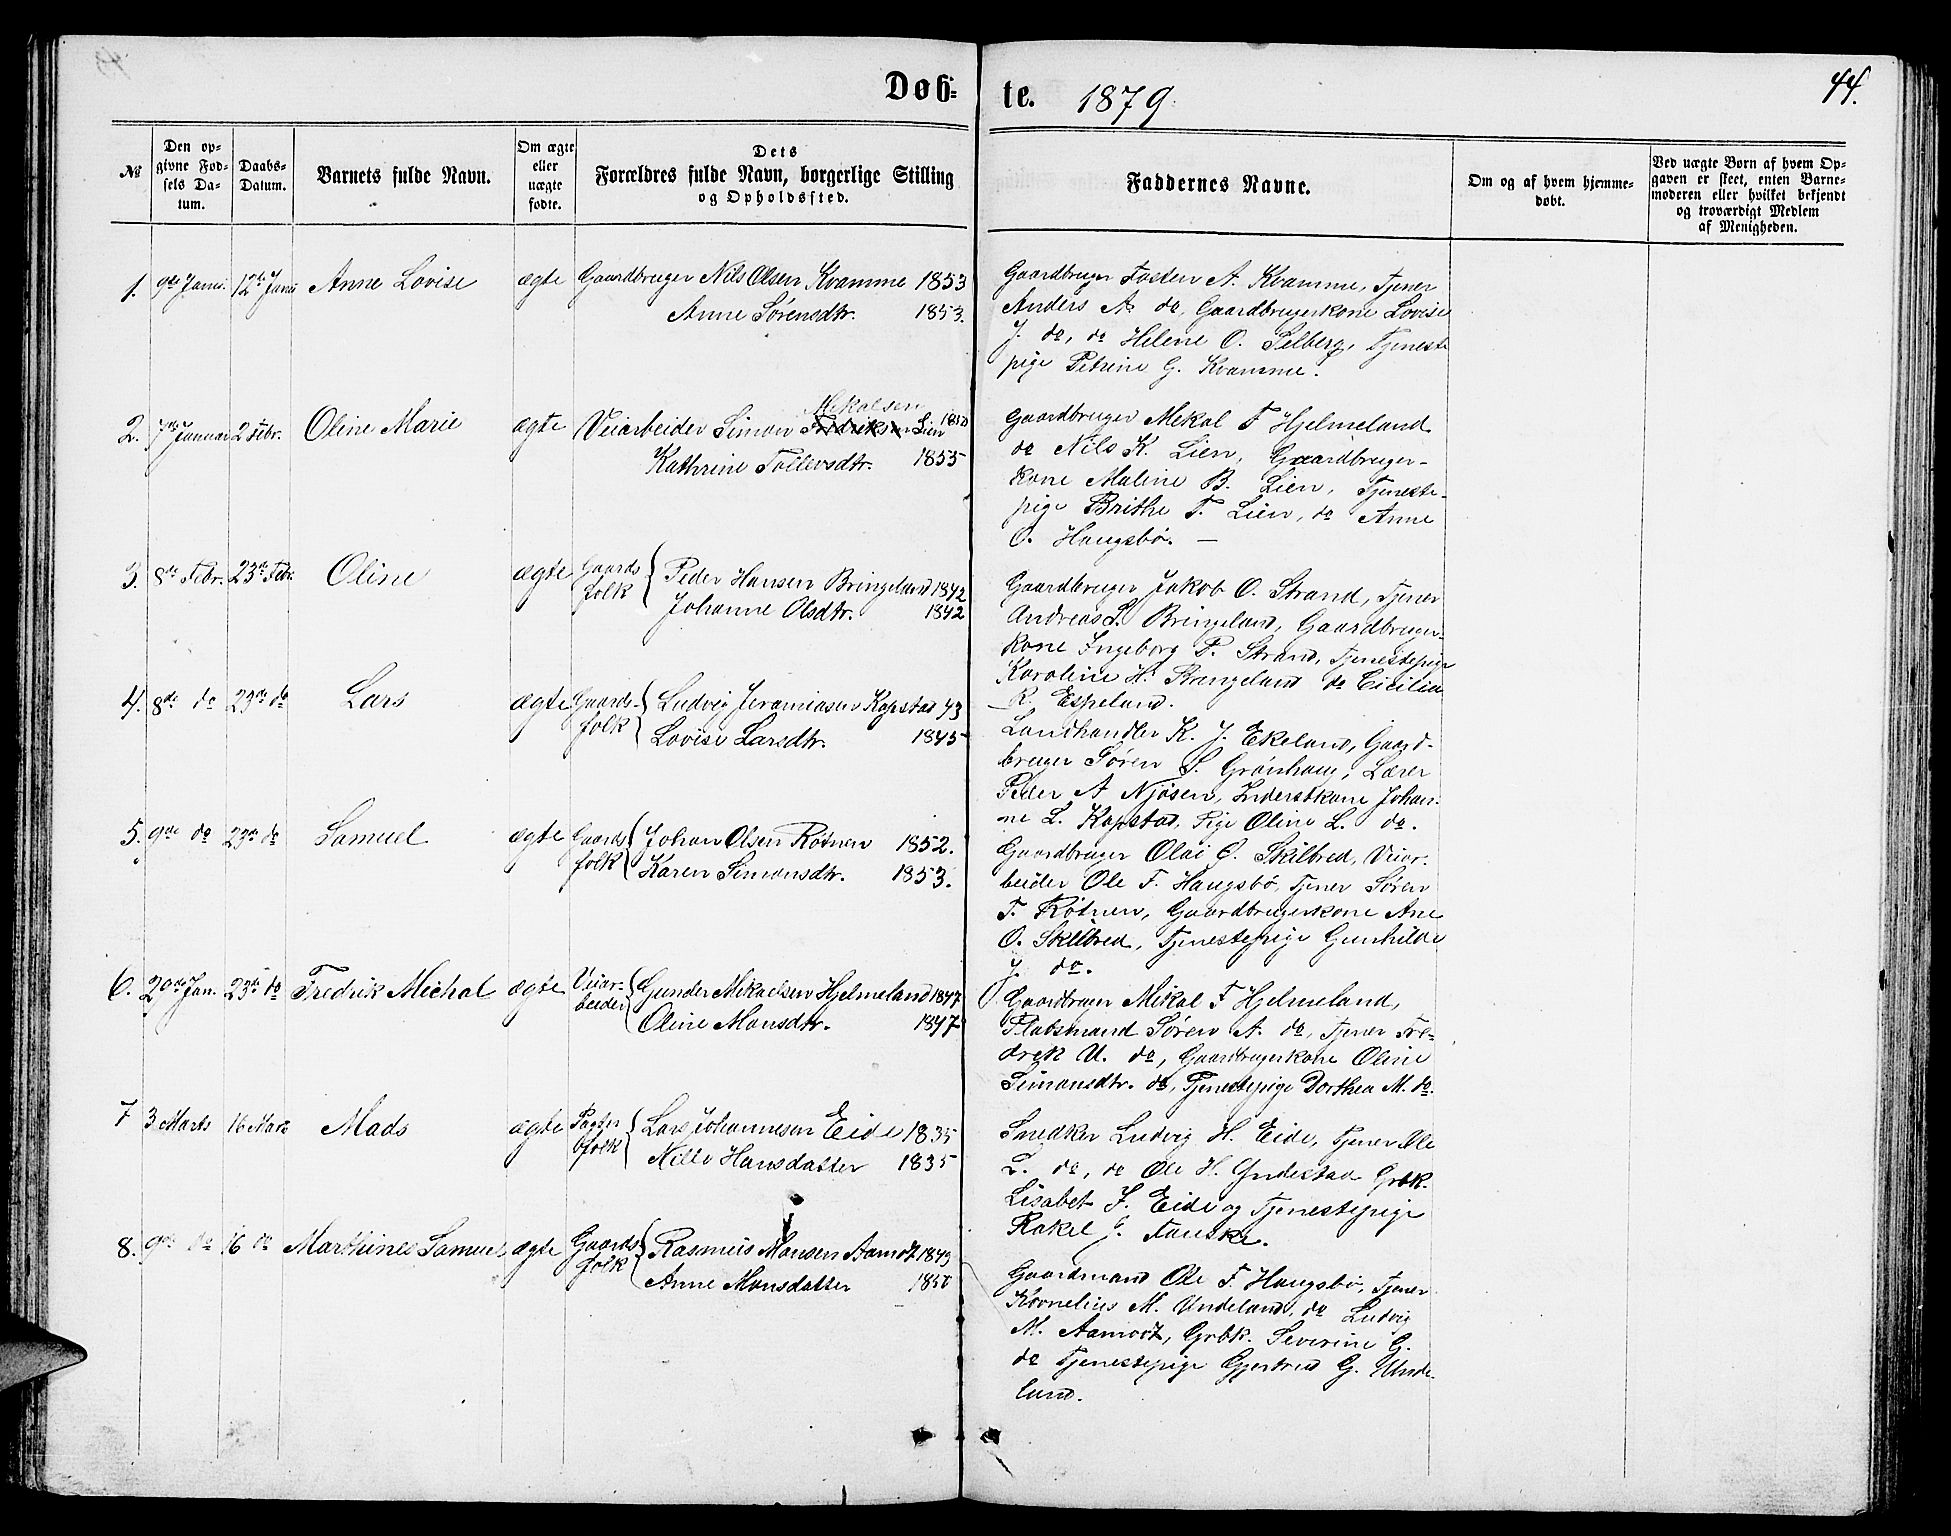 Døb=te. 1879. 44.
№
Den op-
givne Fød-
sels Da-
tum.
Daabs-
Datum.
Barnets fulde Navn.
Om ægte
eller
uægte
fødte.
Dets
Forældres fulde Navn, borgerlige Stilling
og Opholdssted.
Faddernes Navne.
Om og af hvem hjemme-
døbt.
Ved uægte Børn af hvem Op-
gaven er skeet, enten Barne-
moderen eller hvilket bekjendt
og troværdigt Medlem
af Menigheden.
1. 9de Januar 12te Januar Anne Lovise ægte Gaardbruger Nils Olsen Kvamme 1853
Anne Sørensdtr. 1853.
Gaardbruger Tosten A. Kvamme, Tjener
Anders A. do, Gaardbrugerkone Lovise
J. do, do Helene O. Selberg, Tjeneste
pige Petrine G. Kvamme.
2. 7de Januar 2 Febr. Oline Marie ægte Veiarbeider Simon Mekalsen Lien 1850
Kathrine Tollevsdtr. 1855
Gaardbruger Mekal F Hjelmeland
do Nils K. Lien, Gaardbruger-
kone Maline B. Lien, Tjeneste-
pige Brithe T. Lien, do Anne
O. Haugsbø. —
3. 8de Febr. 23de Febr. Oline ægte Gaards
folk Peder Hansen Bringeland 1842
Johanne Olsdtr. 1842
Gaardbruger Jakob O. Strand, Tjener
Andreas S. Bringeland, Gaardbruger-
kone Ingeborg P. Strand, Tjenestepige
Karoline H. Bringeland do Cicilia
R. Espeland.
4. 8de do 23de do Lars ægte Gaards-
folk Ludvig Jeramiasen Kapstad 43
Lovise Larsdtr. 1845
Landhandler K. J. Ekeland, Gaard-
bruger Søren S. Grønhaug, Lærer
Peder A Njøsen, Inderstkone Johan-
ne L. Kapstad, Pige Oline L. do.
5. 9de do 23de do Samuel ægte Gaards
folk Johan Olsen Røtnen 1852.
Karen Simonsdtr. 1853.
Gaardbruger Olai O. Skilbred, Veiar-
beider Ole F. Haugsbø, Tjener Søren
T. Røtnen, Gaardbrugerkone Ane
O. Skilbred, Tjenestepige Gunhilde
J. do.
6. 20de Jan. 23de do Fredrik Michal ægte Veiar-
beider Gunder Mikaelsen Hjelmeland 1847
Oline Monsdtr. 1847
Gaardbruger Mikal F Hjelmeland,
Pladsmand Søren A. do, Tjener Fre-
drek U. do, Gaardbrugerkone Oline
Simonsdtr. do, Tjenestepige Dorthea M. do.
7 3 Marts 16 Marts Mads ægte Pagter
folk Lars Johannesen Eide 1835
Nille Hansdatter 1835
Snedker Ludvig H. Eide, Tjener Ole
L. do, do Ole H. Yndestad Grbk.
Lisabet J. Eide og Tjenestepige
Rakel J. Fauske.
8. 9de do 16 do Marthines Samuel ægte Gaards
folk Rasmus Monsen Aamot 1849
Anne Monsdatter 1850
Gaardmand Ole F. Haugsbø, Tjener
Kornelius M. Undeland, do Ludvig
M. Aamodt, Grbk. Severine G.
do Tjenestepige Gjertrud G. Unde-
land.